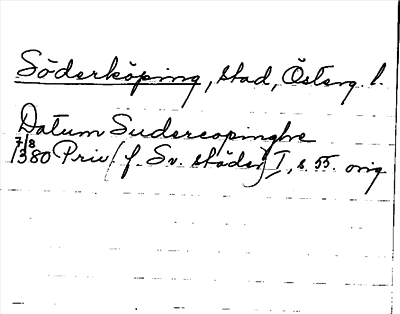 Söderköping, stad, Österg. l.
Datum Sudercopinghe
7/8
1380 Priv. (f. Sv. städer) I, s. 55. orig.